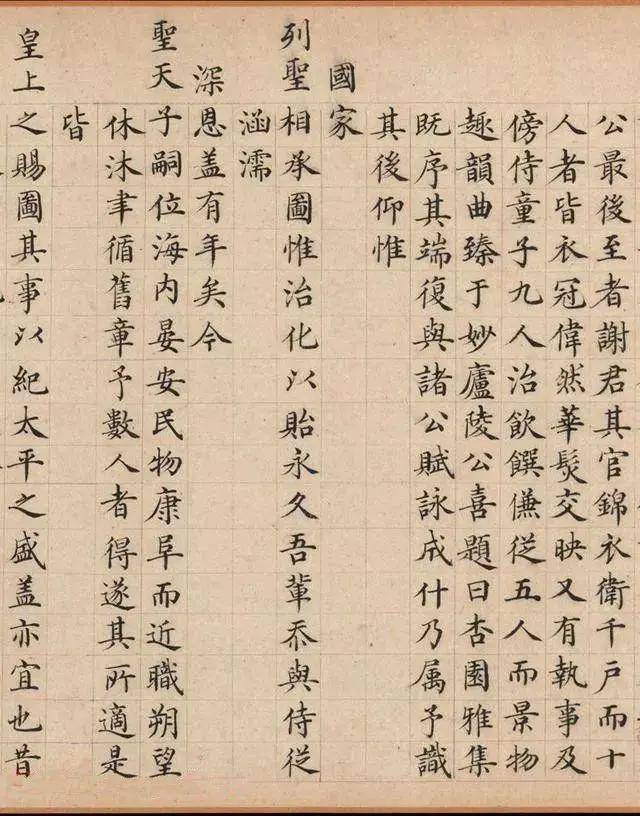 公最後至者謝君其官錦衣衛千戶而十
人者皆衣冠偉然華髮交映又有執事及
傍侍童子九人治飲饌傔從五人而景物
趣韻曲臻于妙廬陵公喜題曰杏園雅集
既序其端復與諸公賦詠成什乃属予識
其後仰惟
國家
列聖相承圖惟治化以貽永久吾輩忝與侍從
涵濡
深恩盖有年矣今
聖天子嗣位海内晏安民物康阜而近職朔望
休沐聿循舊章予數人者得遂其所適是
皆
皇上之賜圖其事以紀太平之盛盖亦宜也昔